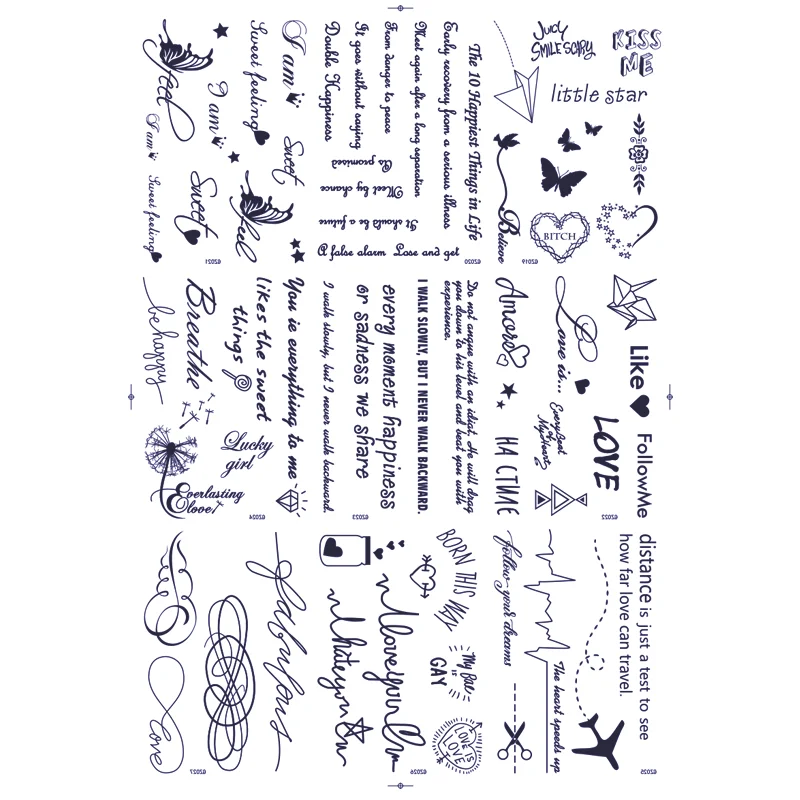 Juicy
SMILE SCARY
KISS
ME
little star
Believe
BITCH
62019
The 10 Happiest Things in Life
Early recovery from a serious illness
Meet again after a long separation
From danger to peace
It goes without saying
Double Happiness
As promised
Meet by chance
It should be a future
A false alarm Lose and get
62020
I am
Sweet feeling
Feel
I am
Sweet
I am
Sweet
feel
Sweet feeling
62021
Like
FollowMe
Love is...
LOVE
Every Beat
of
My Heart
Amore
НА СТИЛЕ
62022
Do not angue with an idiat. He will drag
you down to his level and beat you with
experience.
I WALK SLOWLY, BUT I NEVER WALK BACKWARD.
every moment happiness
or sadness we share
I walk slowly, but I never walk backward.
62023
You ie everything to me
likes the sweet
things
Breathe
be happy
Lucky
girl
Everlasting
love!
62024
distance is just a test to see
how far love can travel.
The heart speeds up
follow your dreams
62025
BORN THIS WAY
My fate
is
GAY
LOVE IS
LOVE
I love you
I hate you
62026
fabulous
love
62027